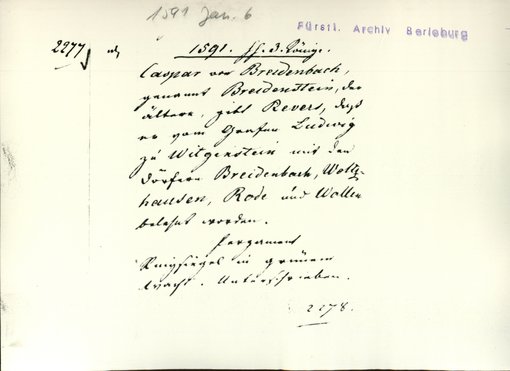 1591 Jan. 6
Fürstl. Archiv Berleburg
2277
1591. ff. 3. Könige.
Caspar von Breidenbach,
genannt Breidenstein, der
ältere, gibt Revers, daß
er vom Grafen Ludwig
zu Witgenstein mit den
Dörfern Breidenbach, Woltz-
hausen, Rode und Wallen
belehnt worden.
Pergament
Ringsiegel in grünem
Wachs. Unterschrieben.
2278.